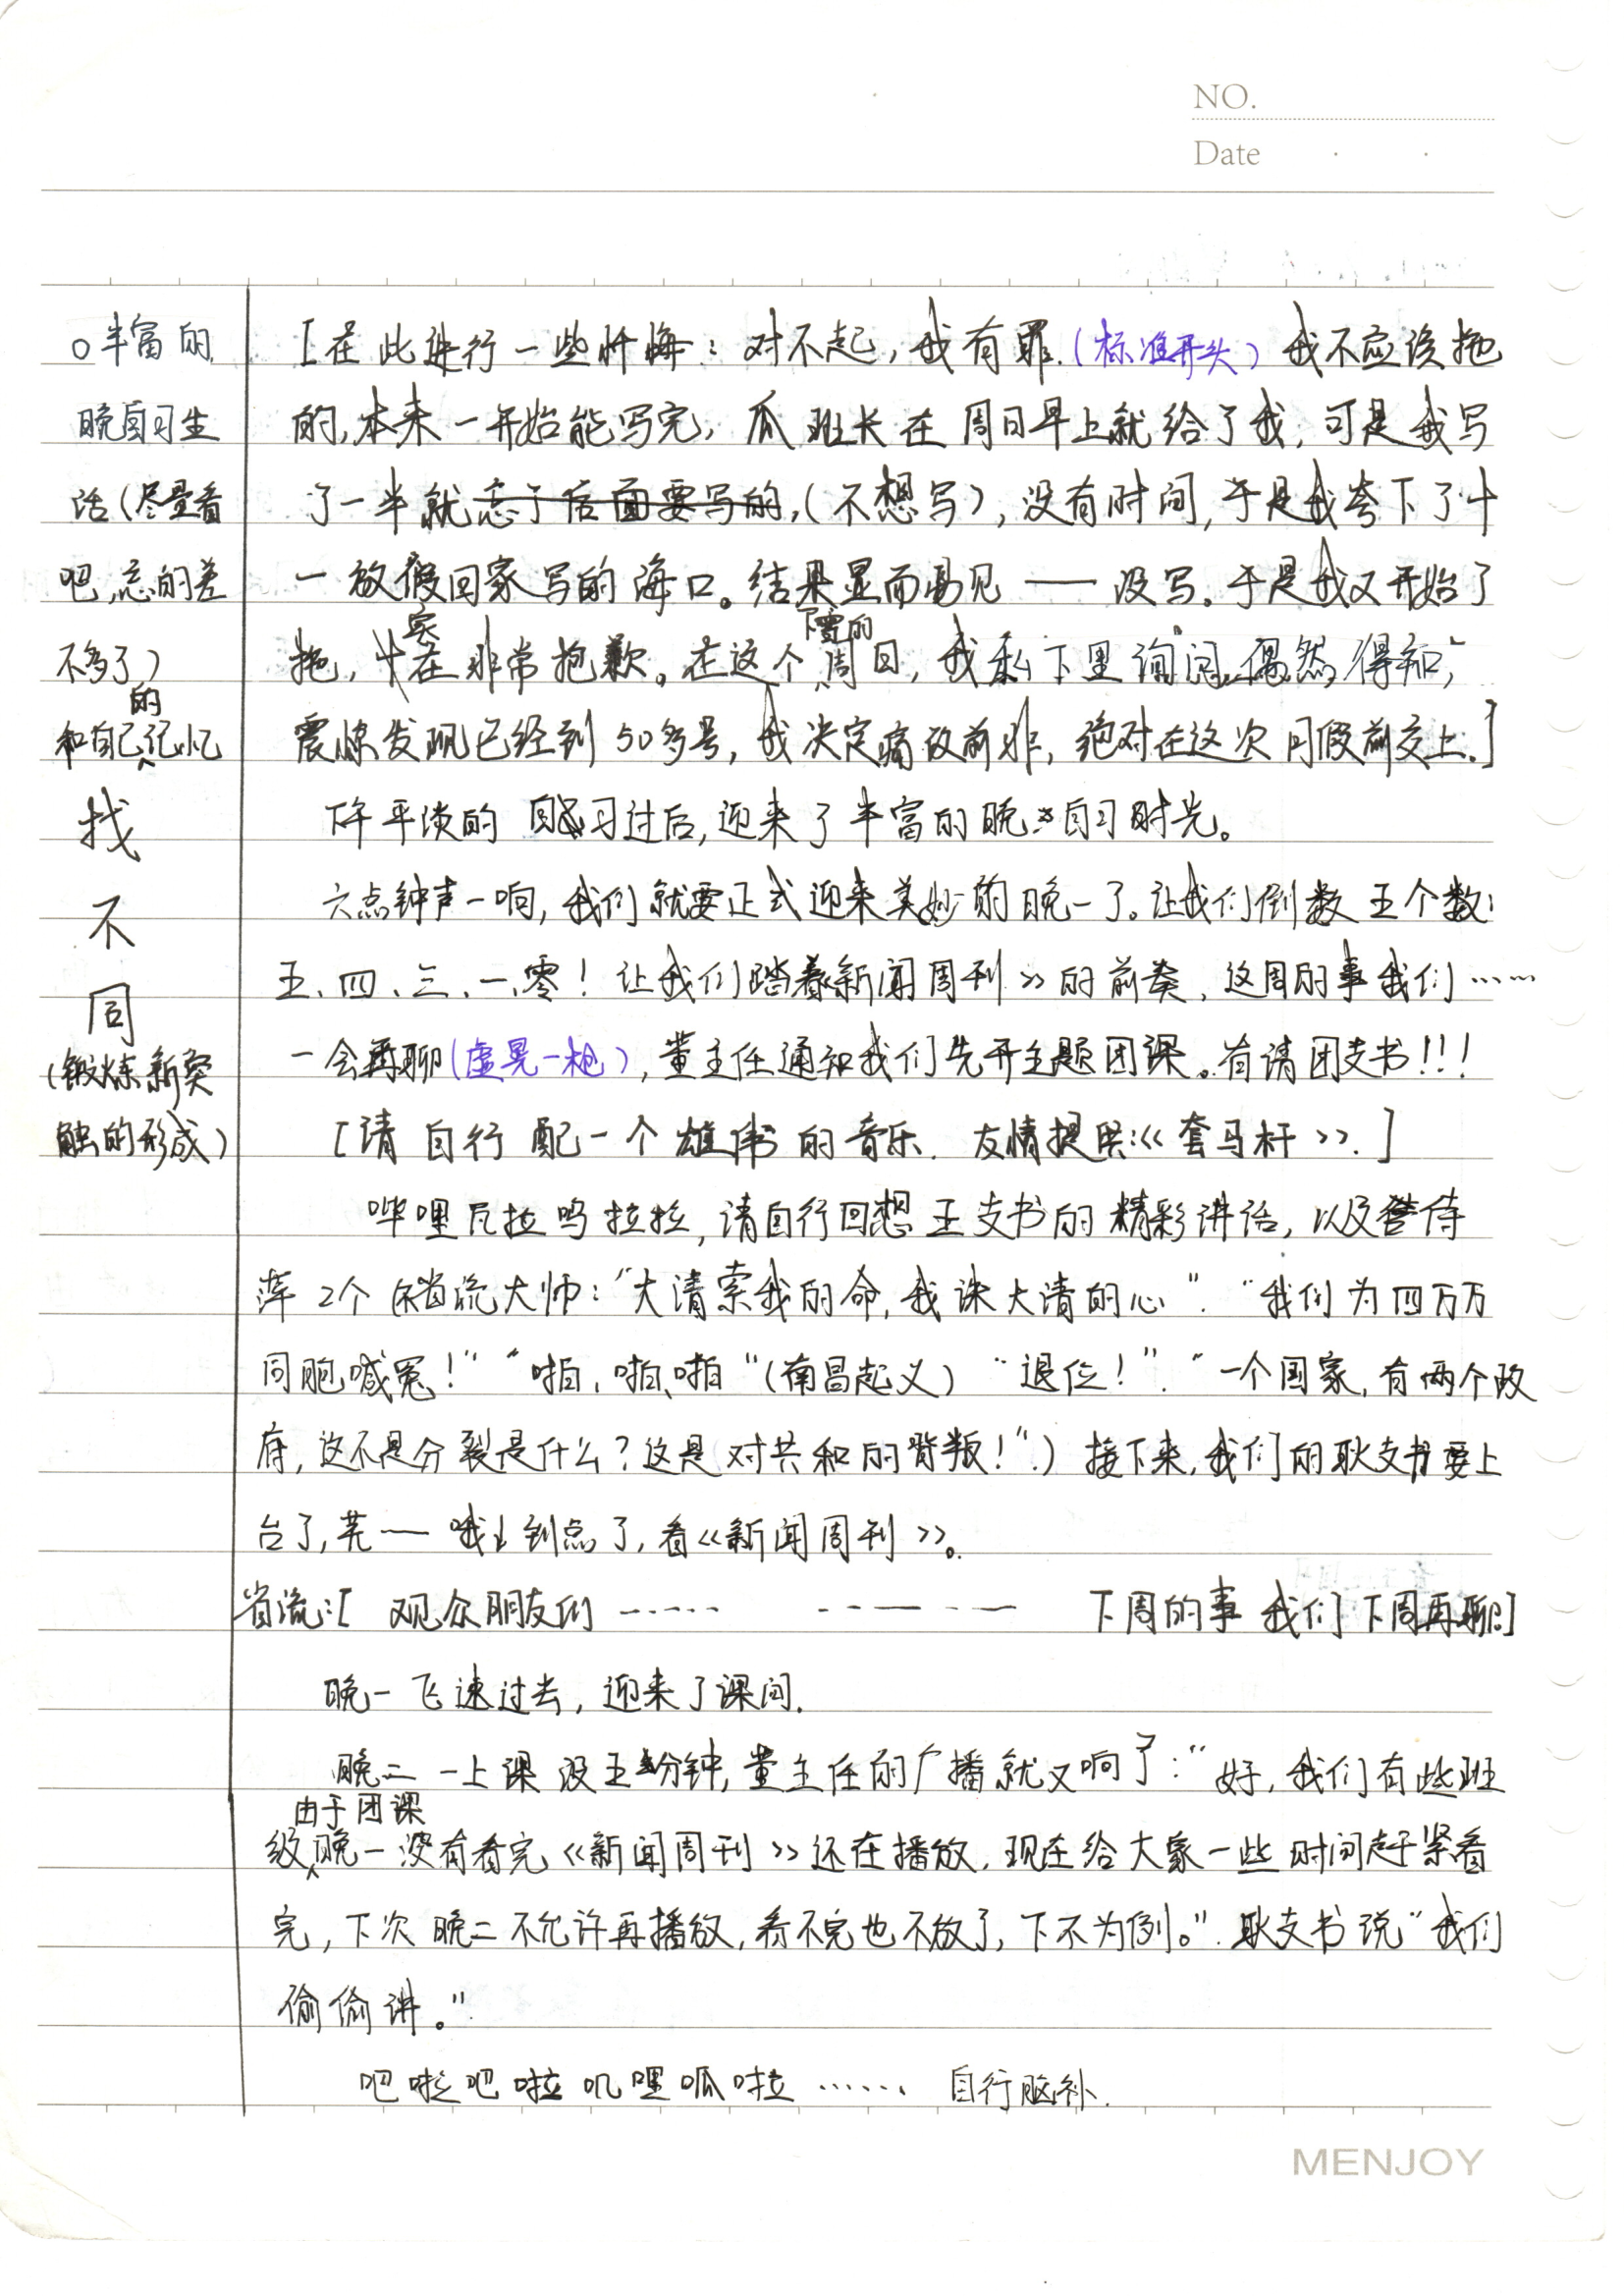 NO.
Date
○丰富的
晚自习生
活(尽量看
吧,忘的差
不多了)
和自己的记忆
找
不
同
(锻炼新突
触的形成)
[在此进行一些忏悔:对不起,我有罪.(标准开头)我不应该拖
的,本来一开始能写完,瓜班长在周日早上就给了我,可是我写
了一半就忘了后面要写的,(不想写),没有时间,于是我夸下了十
一放假回家写的海口。结果显而易见——没写。于是我又开始了
拖,实在非常抱歉。在这个下雪的周日,我私下里询问,偶然得知,
震惊发现已经到50多号,我决定痛改前非,绝对在这次月假前交上.]
下午平淡的自习过后,迎来了丰富的晚自习时光。
六点钟声一响,我们就要正式迎来美妙的晚一了。让我们倒数五个数:
五、四、三、一、零!让我们踏着新闻周刊》的前奏,这周的事我们……
一会再聊(虚晃一枪),董主任通知我们先开主题团课。有请团支书!!!
[请自行配一个雄伟的音乐.友情提供:《套马杆》.]
哔哩瓦拉呜拉拉,请自行回想王支书的精彩讲话,以及
2个省流大师:“大清索我的命,我诛大清的心”.“我们为四万万
同胞喊冤!”“啪、啪、啪”(南昌起义)“退位!”.“一个国家,有两个政
府,这不是分裂是什么?这是对共和的背叛!”.)接下来,我们的耿支书要上
台了,芜——哦!到点了,看《新闻周刊》。
省流:[观众朋友们…… ………… 下周的事我们下周再聊]
晚一飞速过去,迎来了课间.
晚二一上课没五分钟,董主任的广播就又响了:“好,我们有些班
级由于团课晚一没有看完《新闻周刊》还在播放,现在给大家一些时间赶紧看
完,下次晚二不允许再播放,看不完也不放了,下不为例。”.耿支书说“我们
偷偷讲。”
吧啦吧啦叽哩呱啦……自行脑补.
MENJOY